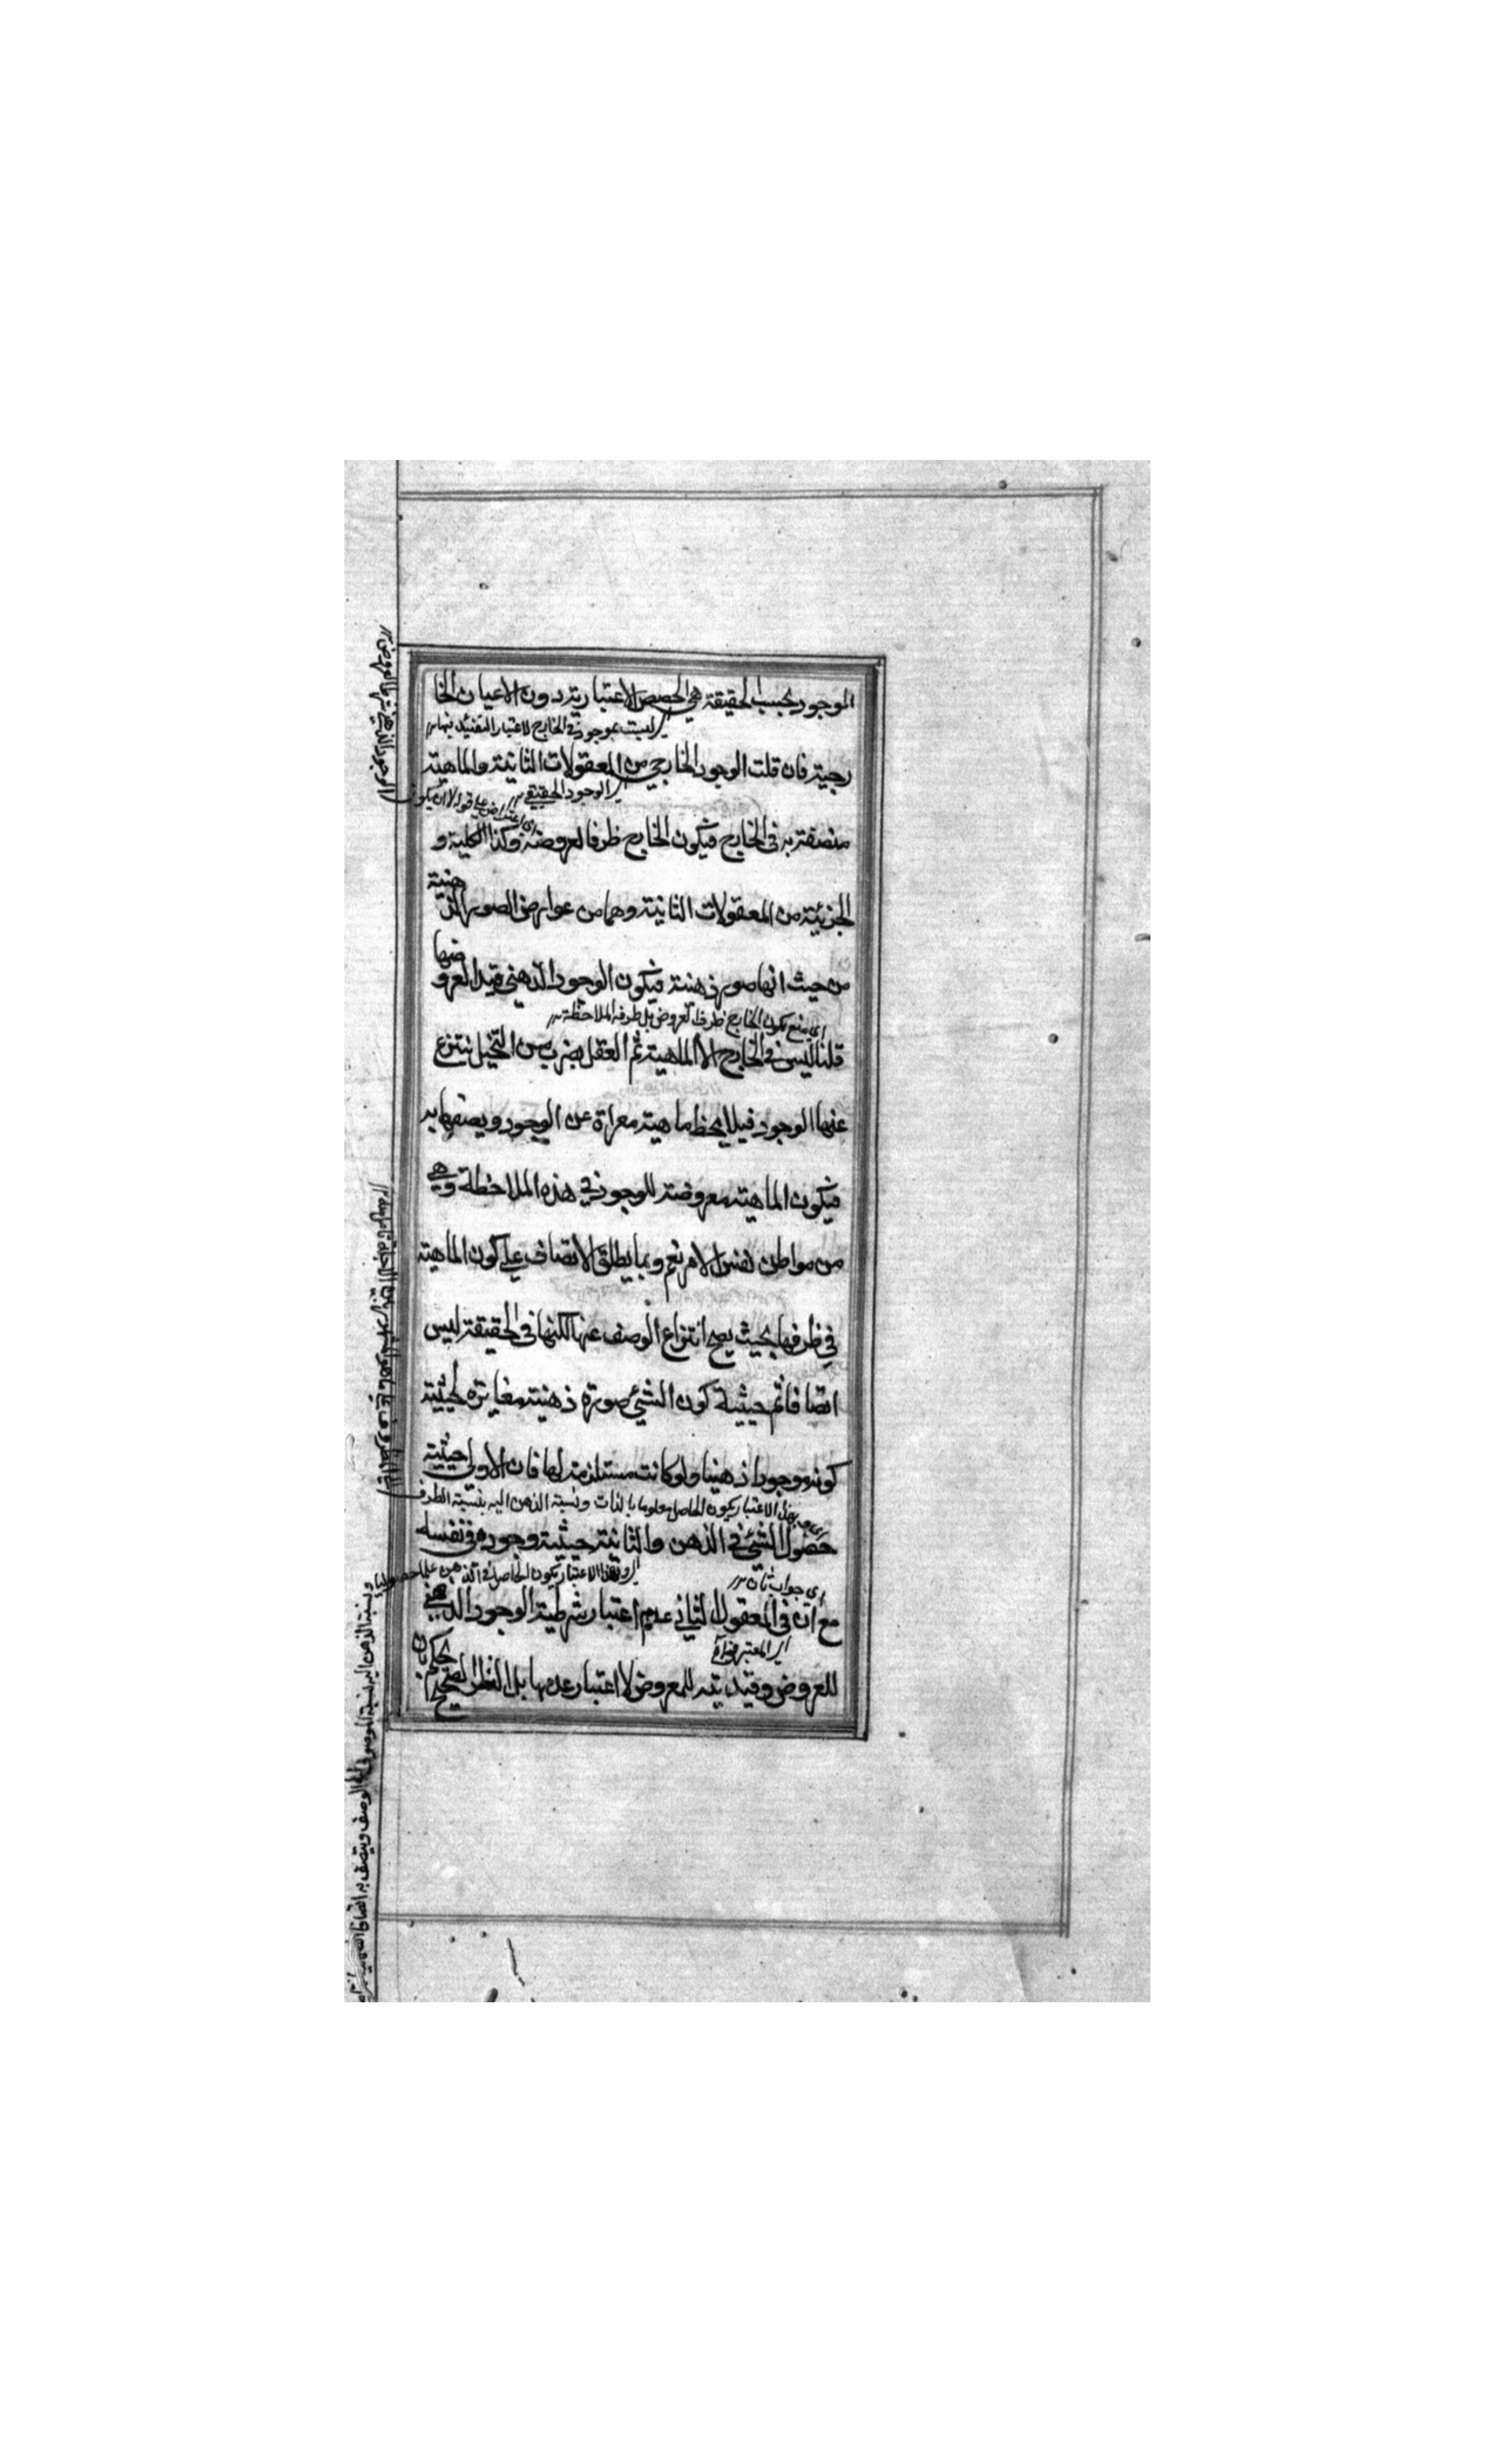 الموجود بحسب الحقيقة هي الحصص الاعتبارية دون الاعيان الخا
ليست بموجود في الخارج لاعتبار التقييد فيها
رجية فان قلت الوجود الخارجي من المعقولات الثانية والماهية
اي الوجود الحقيقي
اي اعتراض على قوله لا ان يكون
متصفة به في الخارج فيكون الخارج ظرفا لعروضه وكذا الكلية و
الجزئية من المعقولات الثانية وهما من عوارض الصور الذهنية
من حيث انها صور ذهنية فيكون الوجود الذهني قيد العروضها
اي منع كون الخارج ظرف العروض بل ظرفه الملاحظة
قلنا ليس في الخارج الا الماهية ثم العقل بضرب من التخيل ينتزع
عنها الوجود فيلاحظ ماهية معراة عن الوجود ويصفها به
فيكون الماهية معروضة للوجود في هذه الملاحظة وهي
من مواطن نفس الامر نعم ربما يطلق الاتصاف على كون الماهية
في ظرفها بحيث يصح انتزاع الوصف عنها لكنها في الحقيقة ليس
اتصافا ثم حيثية كون الشيء صورة ذهنية مغايرة لحيثية
كونه موجودا ذهنيا ولو كانت مستلزمة لها فان الاولى حيثية
الاعتبار يكون الحاصل معلوما بالذات ونسبة الذهن اليه بنسبة الظرف
حصول الشيء في الذهن والثانية حيثية وجوده في نفسه
وبهذا الاعتبار يكون الحاصل في الذهن علما حصوليا
اي جواب ثان
ونسبة الذهن اليه نسبة الموصوف الى الوصف ويتصف به اتصافا
مع ان في المعقول الثاني عدم اعتبار شرطية الوجود الذهني
اي المعتبر
للعروض وقيديته للمعروض لا اعتبار عدمها بل النظر الصحيح يحكم بان